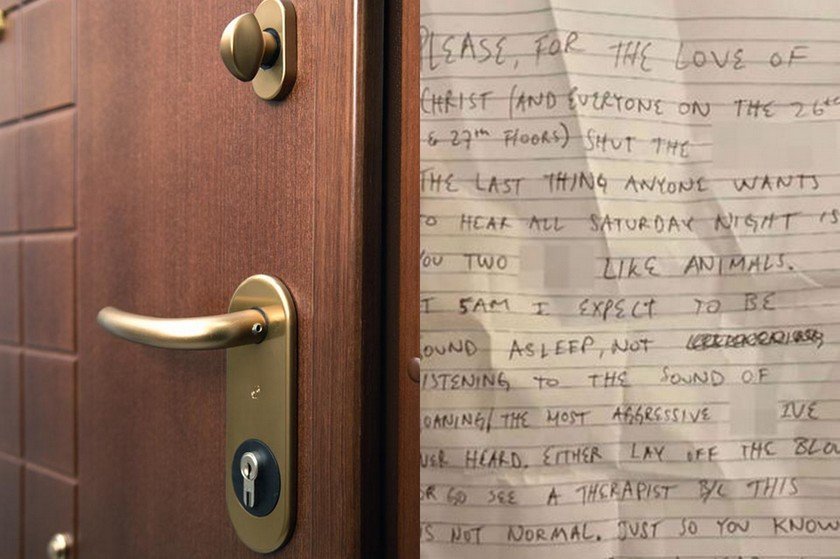 PLEASE, FOR THE LOVE OF
CHRIST (AND EVERYONE ON THE 26th
& 27th FLOORS) SHUT THE
THE LAST THING ANYONE WANTS
TO HEAR ALL SATURDAY NIGHT IS
YOU TWO LIKE ANIMALS.
AT 5AM I EXPECT TO BE
SOUND ASLEEP, NOT
LISTENING TO THE SOUND OF
MOANING/THE MOST AGGRESSIVE IVE
EVER HEARD. EITHER LAY OFF THE BLOW
OR GO SEE A THERAPIST B/C THIS
IS NOT NORMAL. JUST SO YOU KNOW